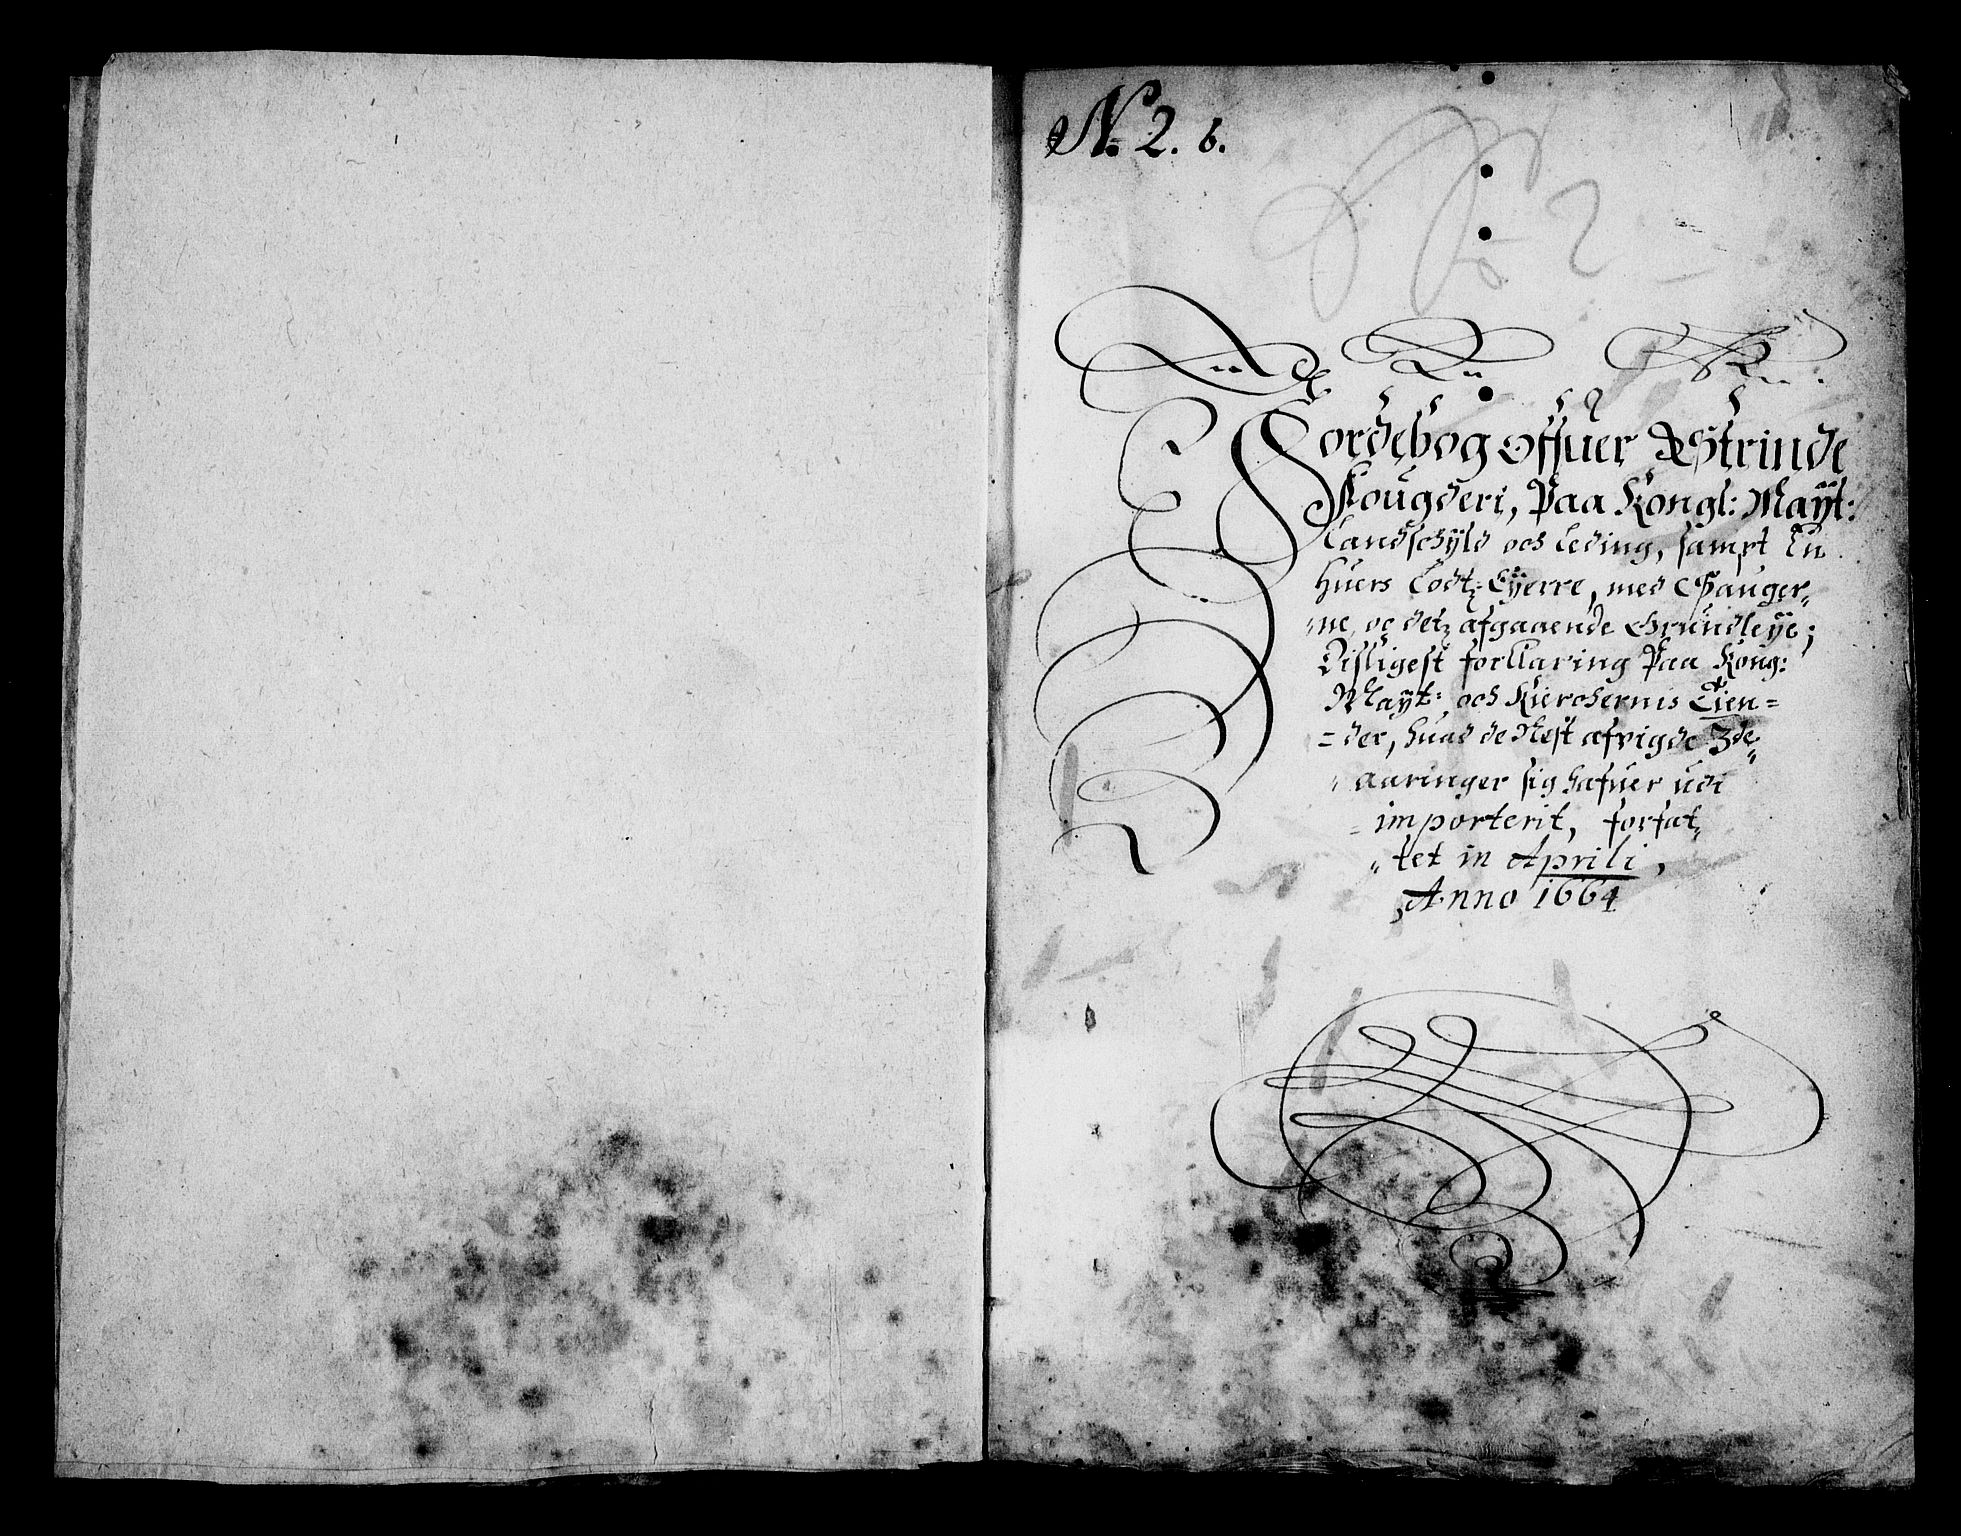 N. 2. b.
Jordebog offuer Strinde
Fougderi, Paa Kongl: Maÿt:
Landschÿld och Leding, sampt En
huers Lodtz Eÿerre, med Sauger„
„ne, oc detz afgaaende Grundleÿe;
Disligest forklaring Paa Kong:
Maÿt: och Kierchernis Tien=
=der, huad de Nest afvigde 3de„
„aaringer sig hafuer udi
=importerit, forfat„
„tet in Aprili,
Anno 1664